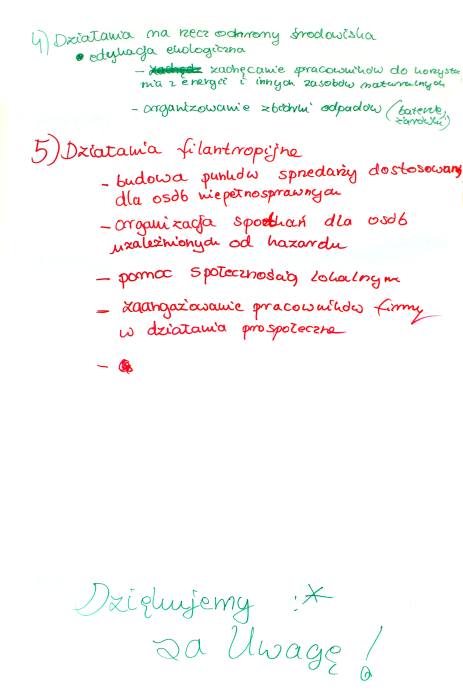 4) Działania na rzecz ochrony środowiska
• edukacja ekologiczna
- zachęcanie pracowników do korzysta
nia z energii i innych zasobów naturalnych
- organizowanie zbiórki odpadów (baterie,
żarówki)
5) Działania filantropijne
- budowa punktów sprzedaży dostosowanych
dla osób niepełnosprawnych
- organizacja spotkań dla osób
uzależnionych od hazardu
- pomoc społecznością lokalnym
- zaangażowanie pracowników firmy
w działania prospołeczne
-
Dziękujemy :*
za Uwagę!